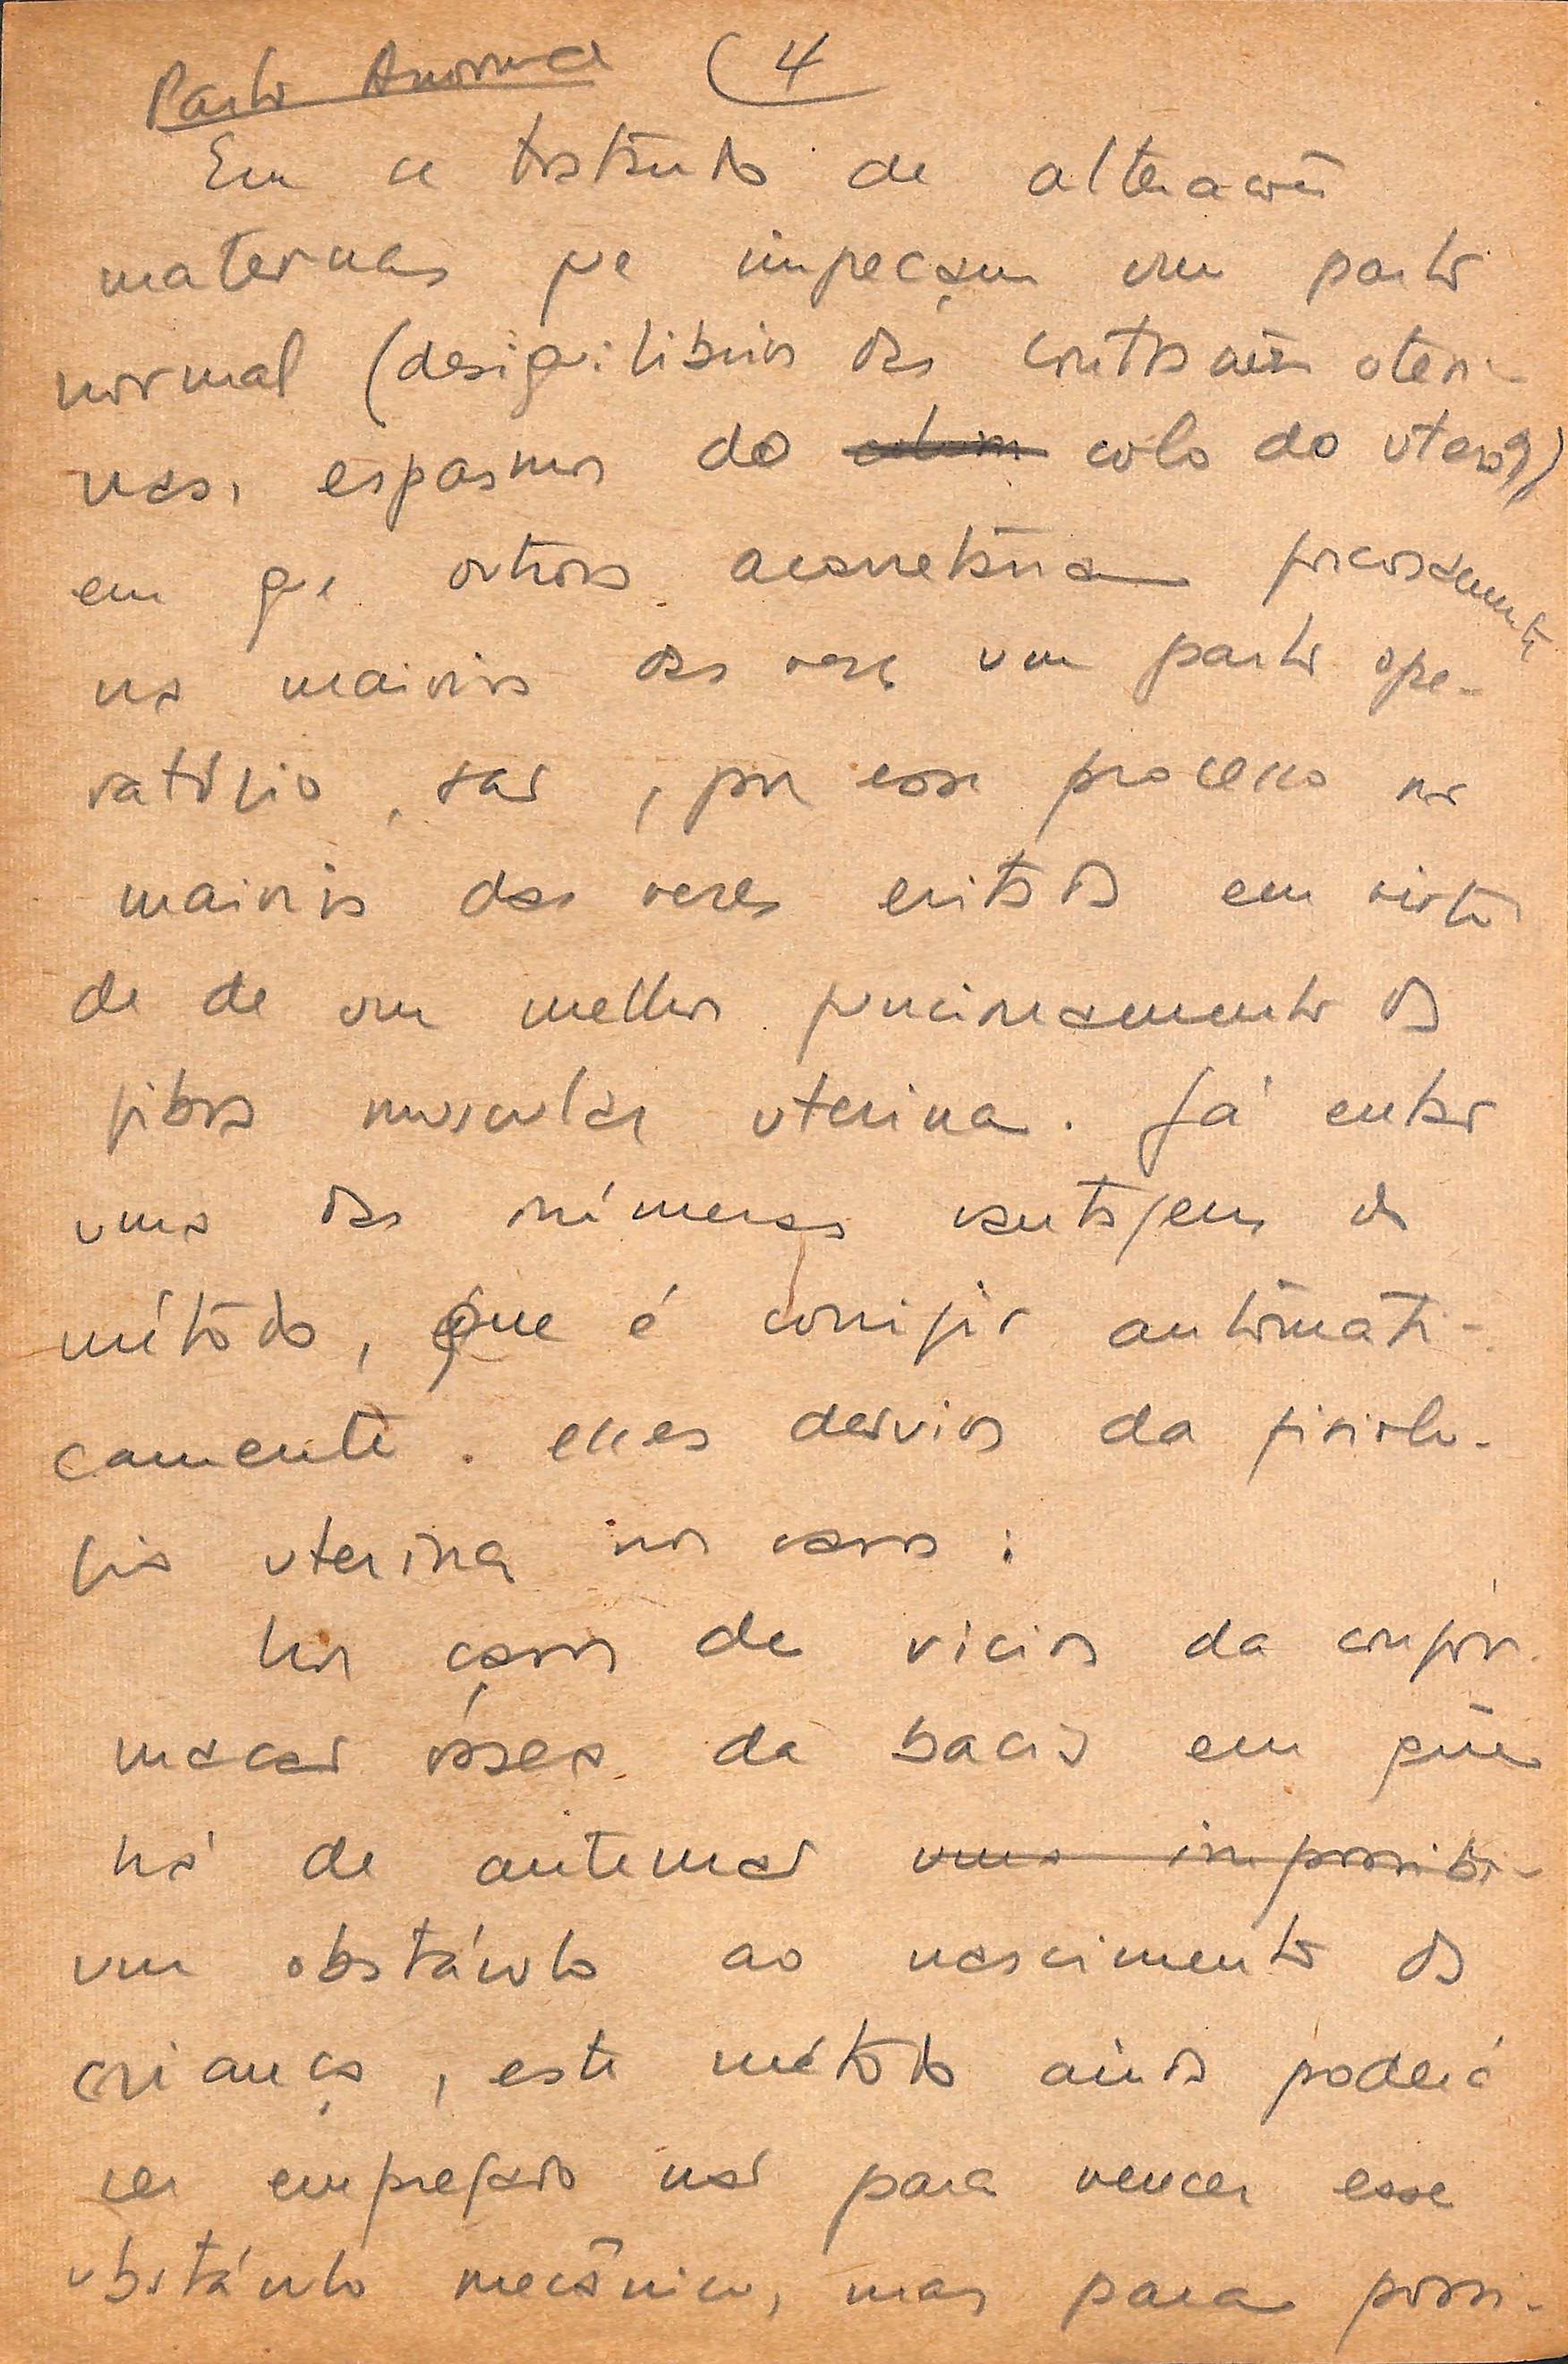 Parto Anormal (4
Em se tratando de alterações
maternas que impeçam um parto
normal (desiquilibrios das contrações uteri-
nas, espasmos do colo do utero)
em que outrora acarretaria forcosamente
na maioria das vezes um parto ope-
ratório, são, por esse processo na
maioria das vezes evitada em virtu
de de um melhor funcionamento da
fibra muscular uterina. Já entra
uma das inúmeras vantagens do
método, que é corrigir automáti-
camente esses desvios da fisiolo-
gia uterina nos casos:
Nos casos de vicios da confor-
macao óssea da bacia em que
há de antemão uma impossibi-
um obstáculo ao nascimento da
criança, este método ainda poderá
ser empregado não para vencer esse
obstáculo mecânico, mas para possi-